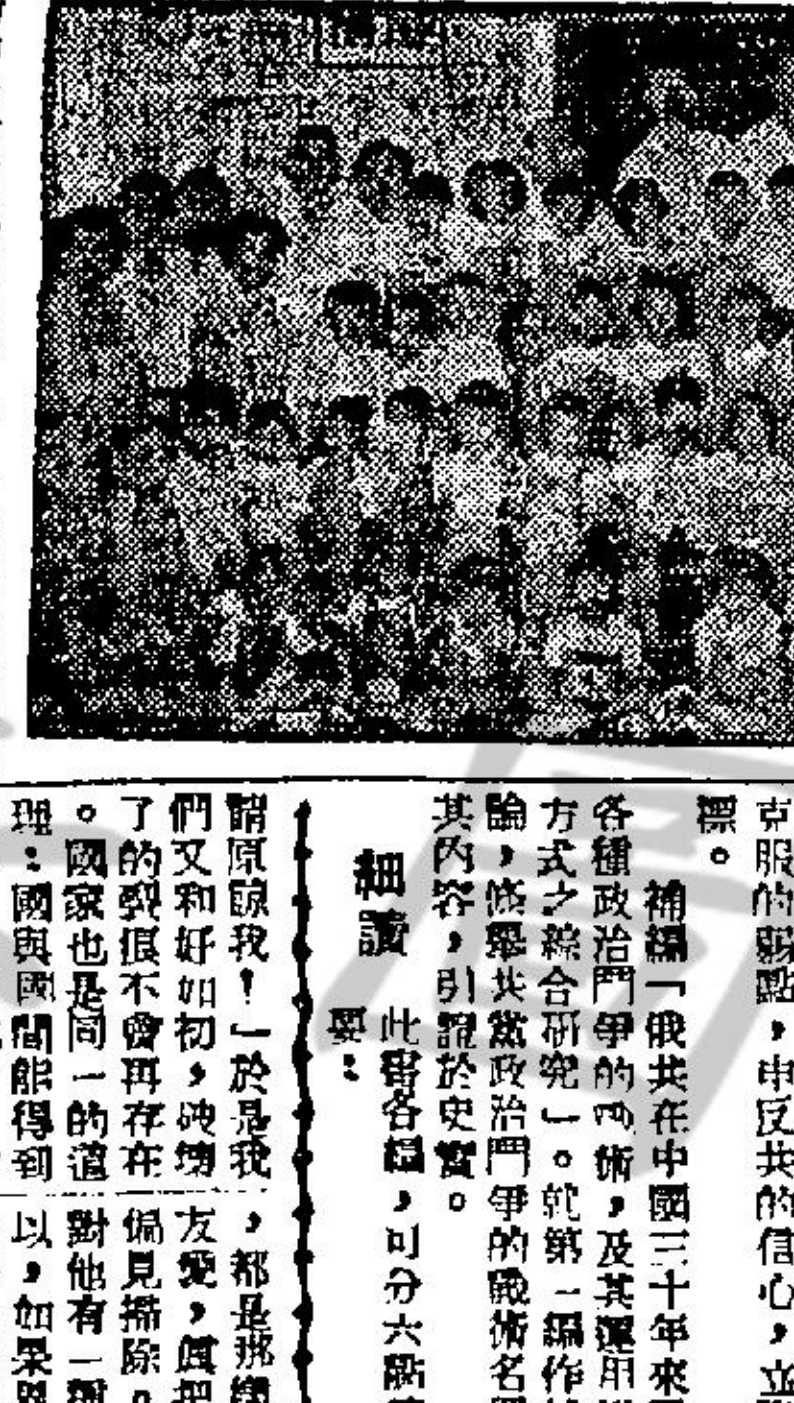 克服的弱點,申反共的信心,立
標。
補編「俄共在中國三十年來
各種政治鬥爭的戰術,及其運用
方式之綜合研究」。就第一編作
論,條舉共黨政治鬥爭的戰術名
其內容,引證於史實。
細讀
此書各編,可分六點
要:
諧原諒我!」於是我
們又和好如初,破壞
了的裂痕不會再存在
。國家也是同一的道
理:國與國間能得到
,都是那
友愛,把
偏見摒除。
對他有一
以,如果